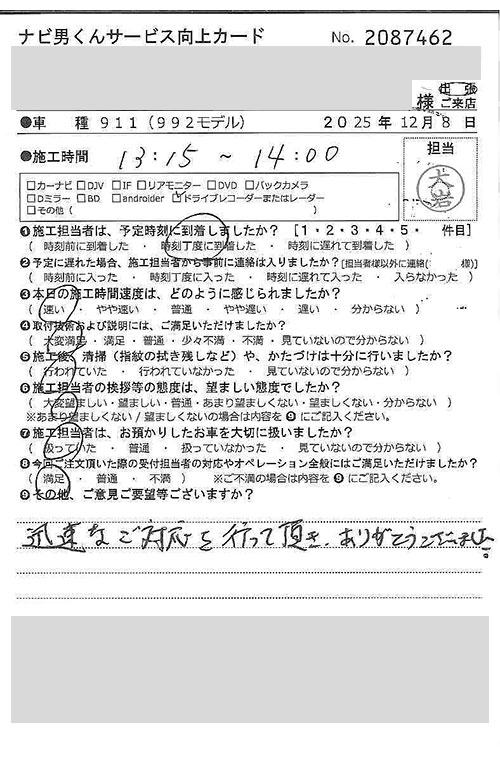 ナビ男くんサービス向上カード No. 2087462
出張
様 ご来店
●車 種 911(992モデル) 2025年 12月 8日
●施工時間 13:15 ~ 14:00 担当
大岩
□カーナビ □DJV □IF □リアモニター □DVD □バックカメラ
□Dミラー □BD □androider □ドライブレコーダーまたはレーダー
□その他( )
❶施工担当者は、予定時刻に到着しましたか? [1・2・3・4・5・ 件目]
( 時刻前に到着した ・ 時刻丁度に到着した ・ 時刻に遅れて到着した )
❷予定に遅れた場合、施工担当者から事前に連絡は入りましたか?[担当者様以外に連絡( 様)]
( 時刻前に入った ・ 時刻丁度に入った ・ 時刻に遅れて入った ・ 入らなかった )
❸本日の施工時間速度は、どのように感じられましたか?
( 速い ・ やや速い ・ 普通 ・ やや遅い ・ 遅い ・ 分からない )
❹取付技術および説明には、ご満足いただけましたか?
( 大変満足・満足・普通・少々不満・不満・見ていないので分からない )
❺施工後、清掃(指紋の拭き残しなど)や、かたづけは十分に行いましたか?
( 行われていた ・ 行われていなかった ・ 見ていないので分からない )
❻施工担当者の挨拶等の態度は、望ましい態度でしたか?
( 大変望ましい・望ましい・普通・あまり望ましくない・望ましくない・分からない )
※あまり望ましくない/望ましくないの場合は内容を❾にご記入ください。
❼施工担当者は、お預かりしたお車を大切に扱いましたか?
( 扱っていた ・ 普通 ・ 扱っていなかった ・ 見ていないので分からない )
❽今回ご注文頂いた際の受付担当者の対応やオペレーション全般にはご満足いただけましたか?
( 満足 ・ 普通 ・ 不満 ) ※ご不満の場合は内容を❾にご記入ください。
❾その他、ご意見ご要望等ございますか?
迅速なご対応を行って頂き、ありがとうございました。